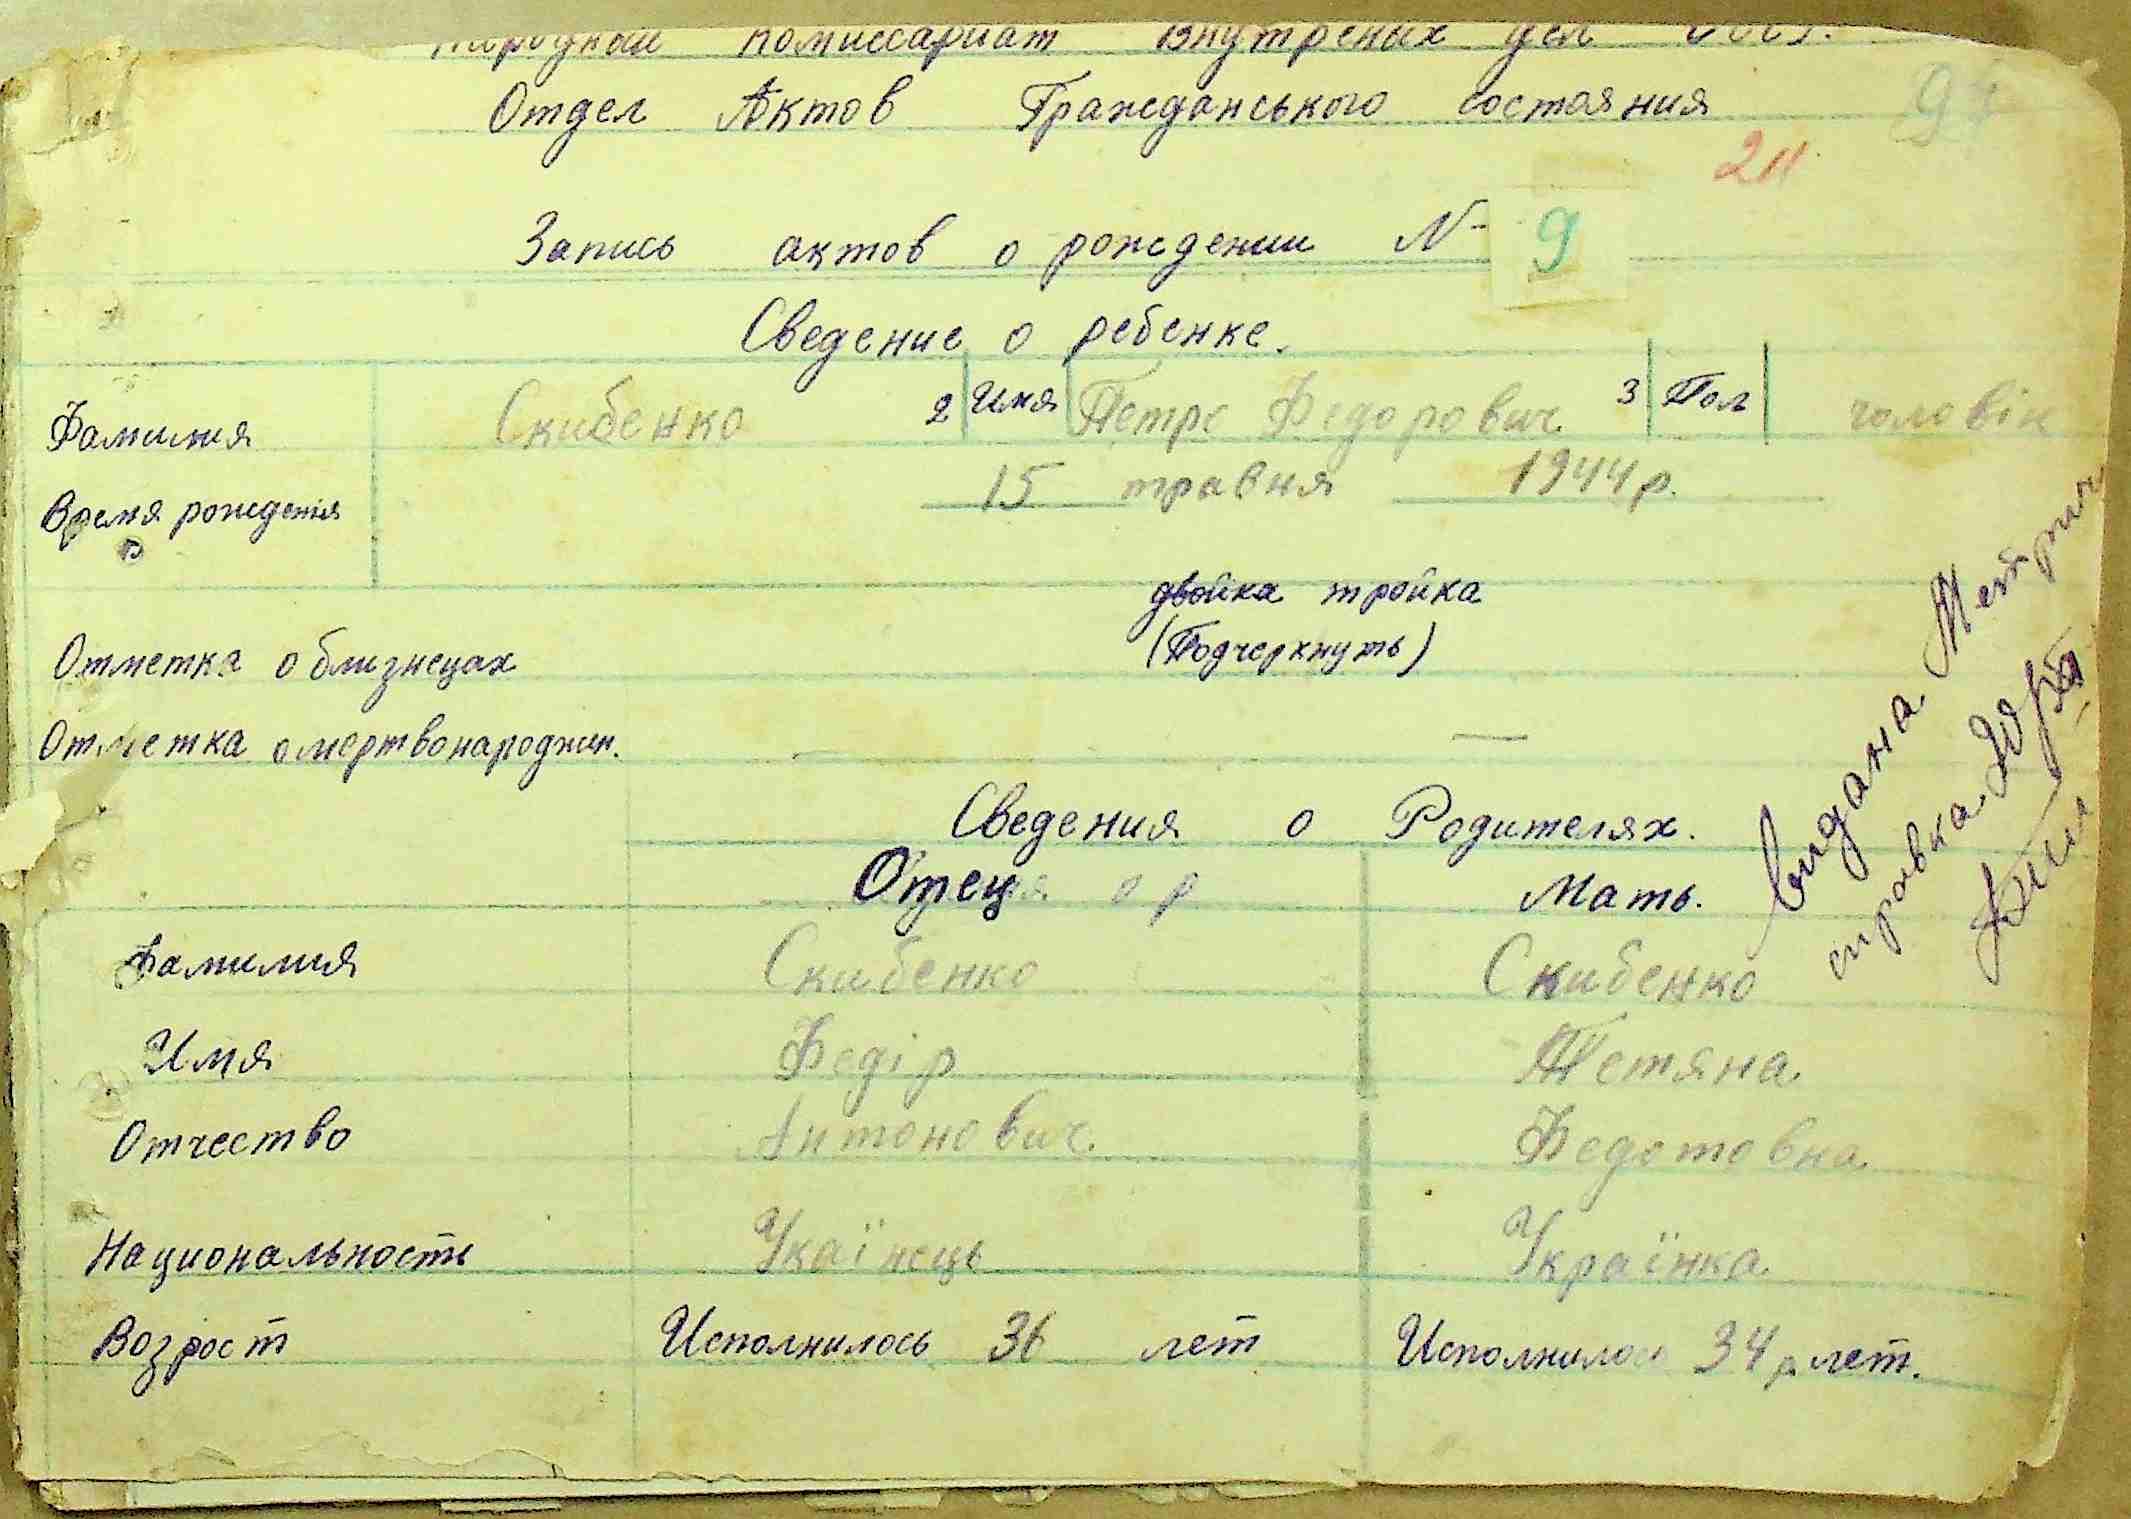 Народний Комиссариат Внутрених дел СССР.
Отдел Актов Гражданського состояния
94
24
Запись актов о рождении N- 9
Сведение о ребенке.
Фамилия Скибенко 2 Имя Петро Федорович 3 Пол чоловік
Время рождения 15 травня 1944 р.
двойка тройка
Отметка о близнецах (Подчеркнуть)
Отметка о мертвонароджен. — —
Сведения о Родителях.
Отец Мать.
Фамилия Скибенко Скибенко
Имя Федір Тетяна
Отчество Антонович. Федотовна
Национальность Укаїнець Українка
Возрост Исполнилось 36 лет Исполнилось 34 р лет.
видана Метрич
справка